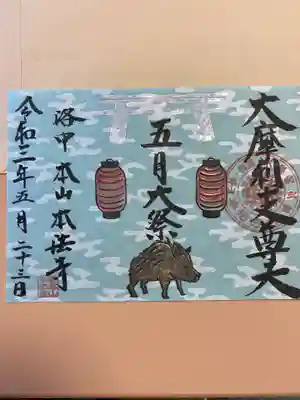 大摩利支尊天
五月大祭
洛中 本山本法寺
令和三年五月二十三日